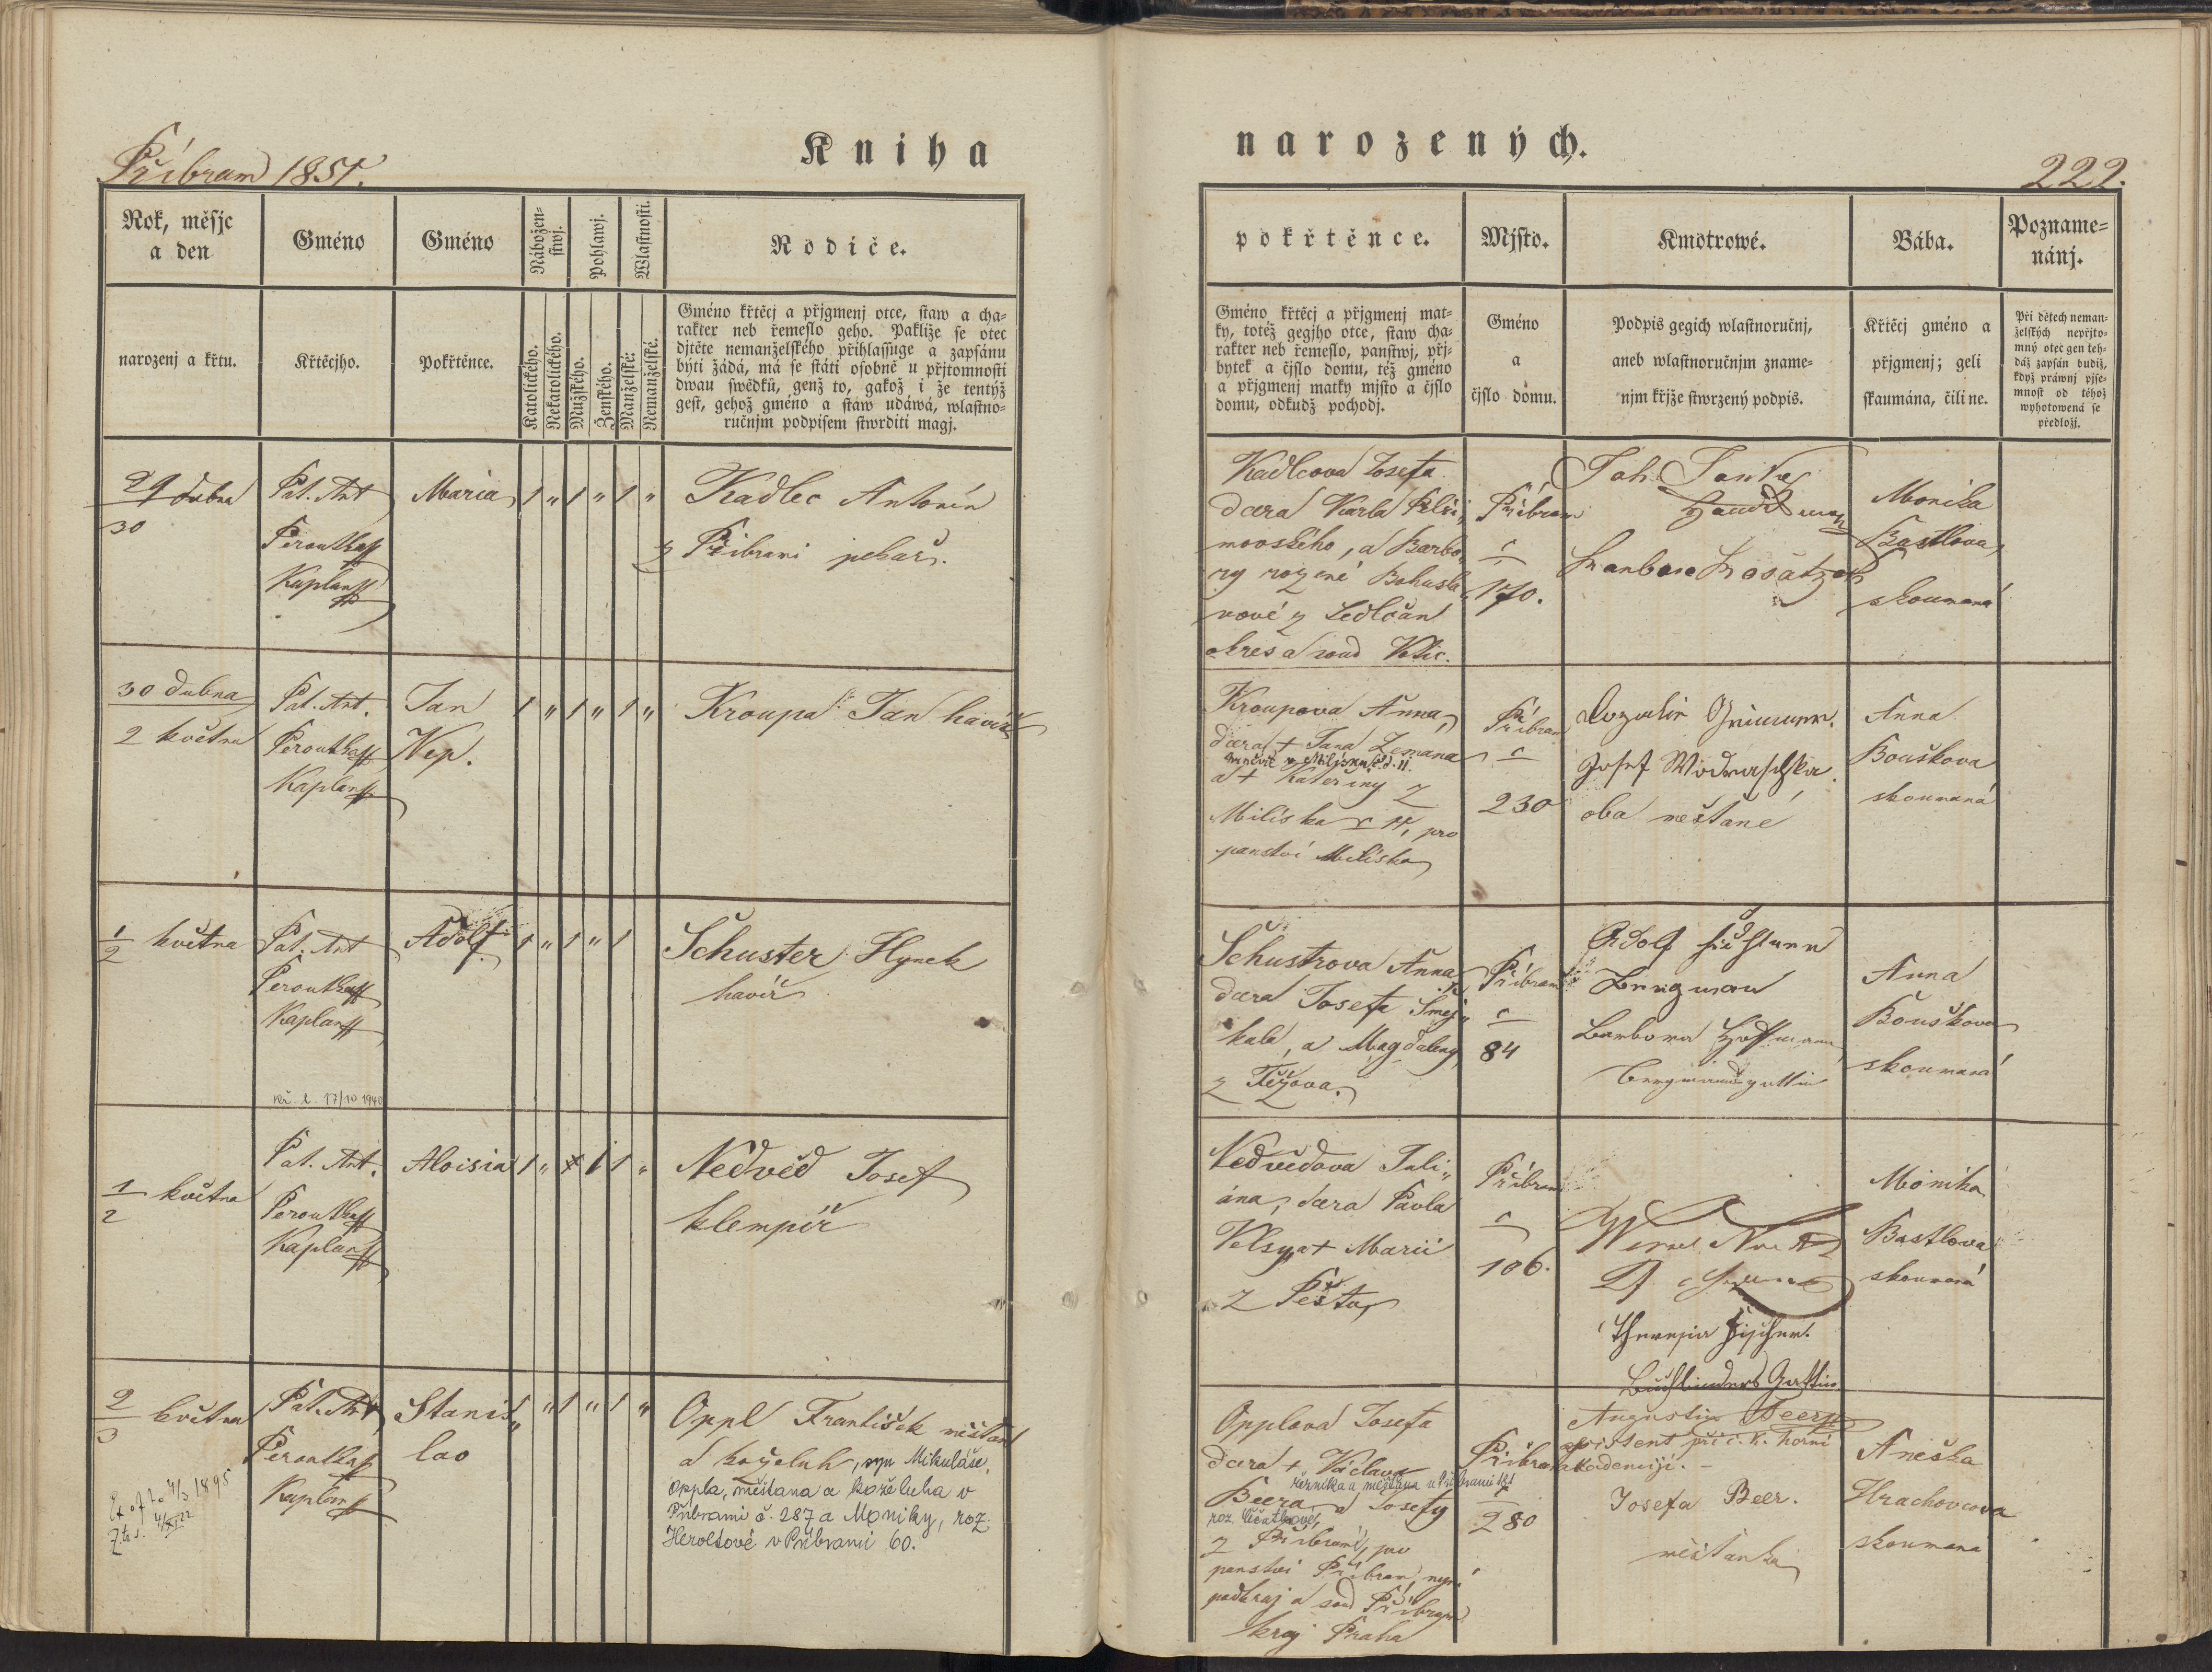 Kniha
narozených.
Příbram 1851.
222.
Rok, měsjc
a den
narozenj a křtu.
Gméno
Křtěcjho.
Gméno
Pokřtěnce.
Nábožen-
stwj.
Pohlawj.
Wlastnosti.
Katolického.
Nekatolického.
Mužského.
Ženského.
Manželské:
Nemanželské.
Rodiče.
Gméno křtěcj a přjgmenj otce, staw a cha-
rakter neb řemeslo geho. Pakliže se otec
djtěte nemanželského přihlassuge a zapsánu
býti žádá, má se státi osobně u přjtomnosti
dwau swědků, genž to, gakož i že tentýž
gest, gehož gméno a staw udáwá, wlastno-
ručnjm podpisem stwrditi magj.
29 dubna
30
Pat. Ant
Peroutka
Kaplan
Maria
1 " 1 " 1 "
Kadlec Antonín
z Příbrami pekař.
30 dubna
2 května
Pat. Ant.
Peroutka
Kaplan
Jan
Nep.
1 " 1 " 1 "
Kroupa Jan havíř
1
2 května
Pat. Ant
Peroutka
Kaplan
17/10 1940
Adolf
1 " 1 " 1
Schuster Hynek
havíř
1
2 května
Pat. Ant.
Peroutka
Kaplan
Aloisia
1 " 1 1 "
Nedvěd Josef
klempíř
2
3 května
4/3 1895
Pat. Ant
Peroutka
Kaplan
Stanis
lav
" 1 " 1 "
Oppl František měšťan
a koželuh, syn Mikuláše
Oppla, měšťana a koželuha v
Příbrami č. 287 a Moniky, roz.
Heroltové v Příbrami 60.
pokřtěnce.
Gméno křtěcj a přjgmenj mat-
ky, totéž gegjho otce, staw cha-
rakter neb řemeslo, panstwj, přj-
bytek a čjslo domu, též gméno
a přjgmenj matky mjsto a čjslo
domu, odkudž pochodj.
Mjsto.
Gméno
a
čjslo domu.
Kmotrowé.
Podpis gegich wlastnoručnj,
aneb wlastnoručnjm zname-
njm křjže stwrzený podpis.
Bába.
Křtěcj gméno a
přjgmenj; geli
skaumána, čili ne.
Pozname-
nánj.
Při dětech neman-
želských nepřjto-
mný otec gen teh-
dáž zapsán budiž,
když práwnj pjse-
mnost od téhož
wyhotowená se
předložj.
Kadlcova Josefa
dcera Karla
movského, a Barbo
ry rozené Bohusla
vové z Sedlčan
okres a soud
Příbram
č
170.
Joh.
Monika
Bastlova
skoumaná
Kroupova Anna,
dcera + Jana Zemana
v Milíska č. 11.
a + Kateřiny z
Milíska č 11, pro
panství Milíska
Příbram
č
230
Josef Wodraschka
oba měšťané
Anna
Bouškova
skoumaná
Schustrova Anna
dcera Josefa Smej
kala, a Magdaleny
z Těžova.
Příbram
č
84
Adolf
Bergman
Barbora Hoffmann
Bergmannsgattin
Anna
Bouškova
skoumaná
Nedvědova Juli
ána, dcera Pavla
a + Marii
z Pešta
Příbram
č
106.
Theresia Fischer.
Buchbinders Gattin
Monika
Bastlova
skoumaná
Opplova Josefa
dcera + Václava
řezníka a měšťana v Příbrami 181
Beera a Josefy
roz.
z Příbrami, pro
panství Příbram, nyní
podkraj a soud Příbram
kraj Praha
Příbram
č
280
Augustin Beer
assistent při c. k. horní
akademiji.
Josefa Beer.
měšťanka
Aneška
Hrachovcova
skoumana